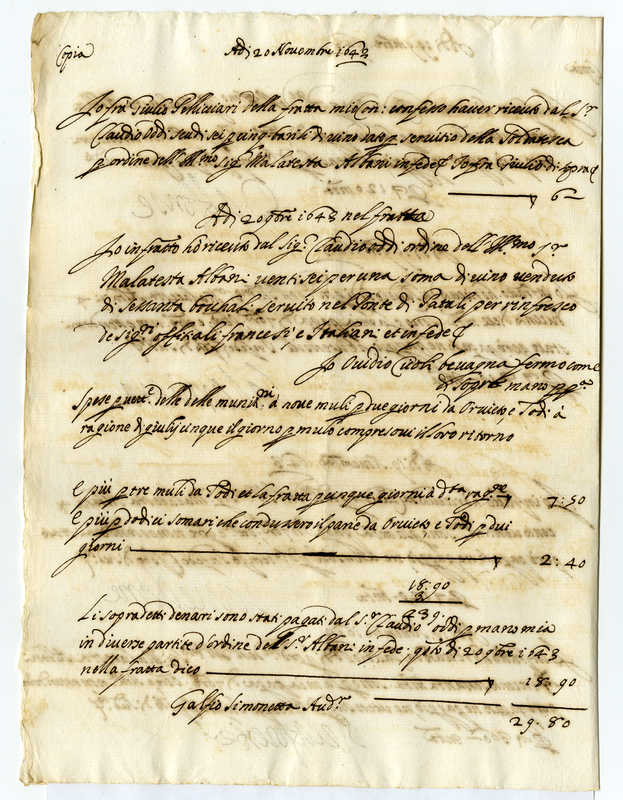 Copia
Adì 20 Novembre 1643
Io fra Giulio Pellicciari della fratta confesso haver ricevuto dal S.r
Claudio Oddi scudi sei p cinq barili di vino dato p servitio della Soldatesca
p ordine dell' Ill.mo Sig.r Malatesta Albani in fede Io fra Giulio di sopra
6 —
Adì 20 9bre 1643 nel fratta
Io infratto ho ricevuto dal Sig.r Claudio oddi ordine dell' Ill.mo s.r
Malatesta Albani venti sei per una soma di vino venduto
di sessanta bochali servito nel Ponte di Patali per rinfresco
de Sig.ri offitiali francesi, e Italiani et in fede
Io Ovidio bevagna fermo come
di sopra mano pp.a
Spese p vett.e delle delle muniz.ni à nove muli p due giorni da Orvieto, e Todi à
ragione di giulij cinque il giorno p mulo compresovi il loro ritorno
E più p tre muli da Todi et la fratta p cinque giorni à d.ta rag.ne 7:50
E più p dodici somari, che condussero il pane da Orvieto, e Todi p dui
giorni 2:40
18:90
Li sopradetti denari sono stati pagati dal S.r Claudio oddi p mano mia
in diverse partite d'ordine del S.r Albani in fede. q.to dì 20 9bre 1643
nella fratta dico 18:90
Simonetta Aud.r
29.80